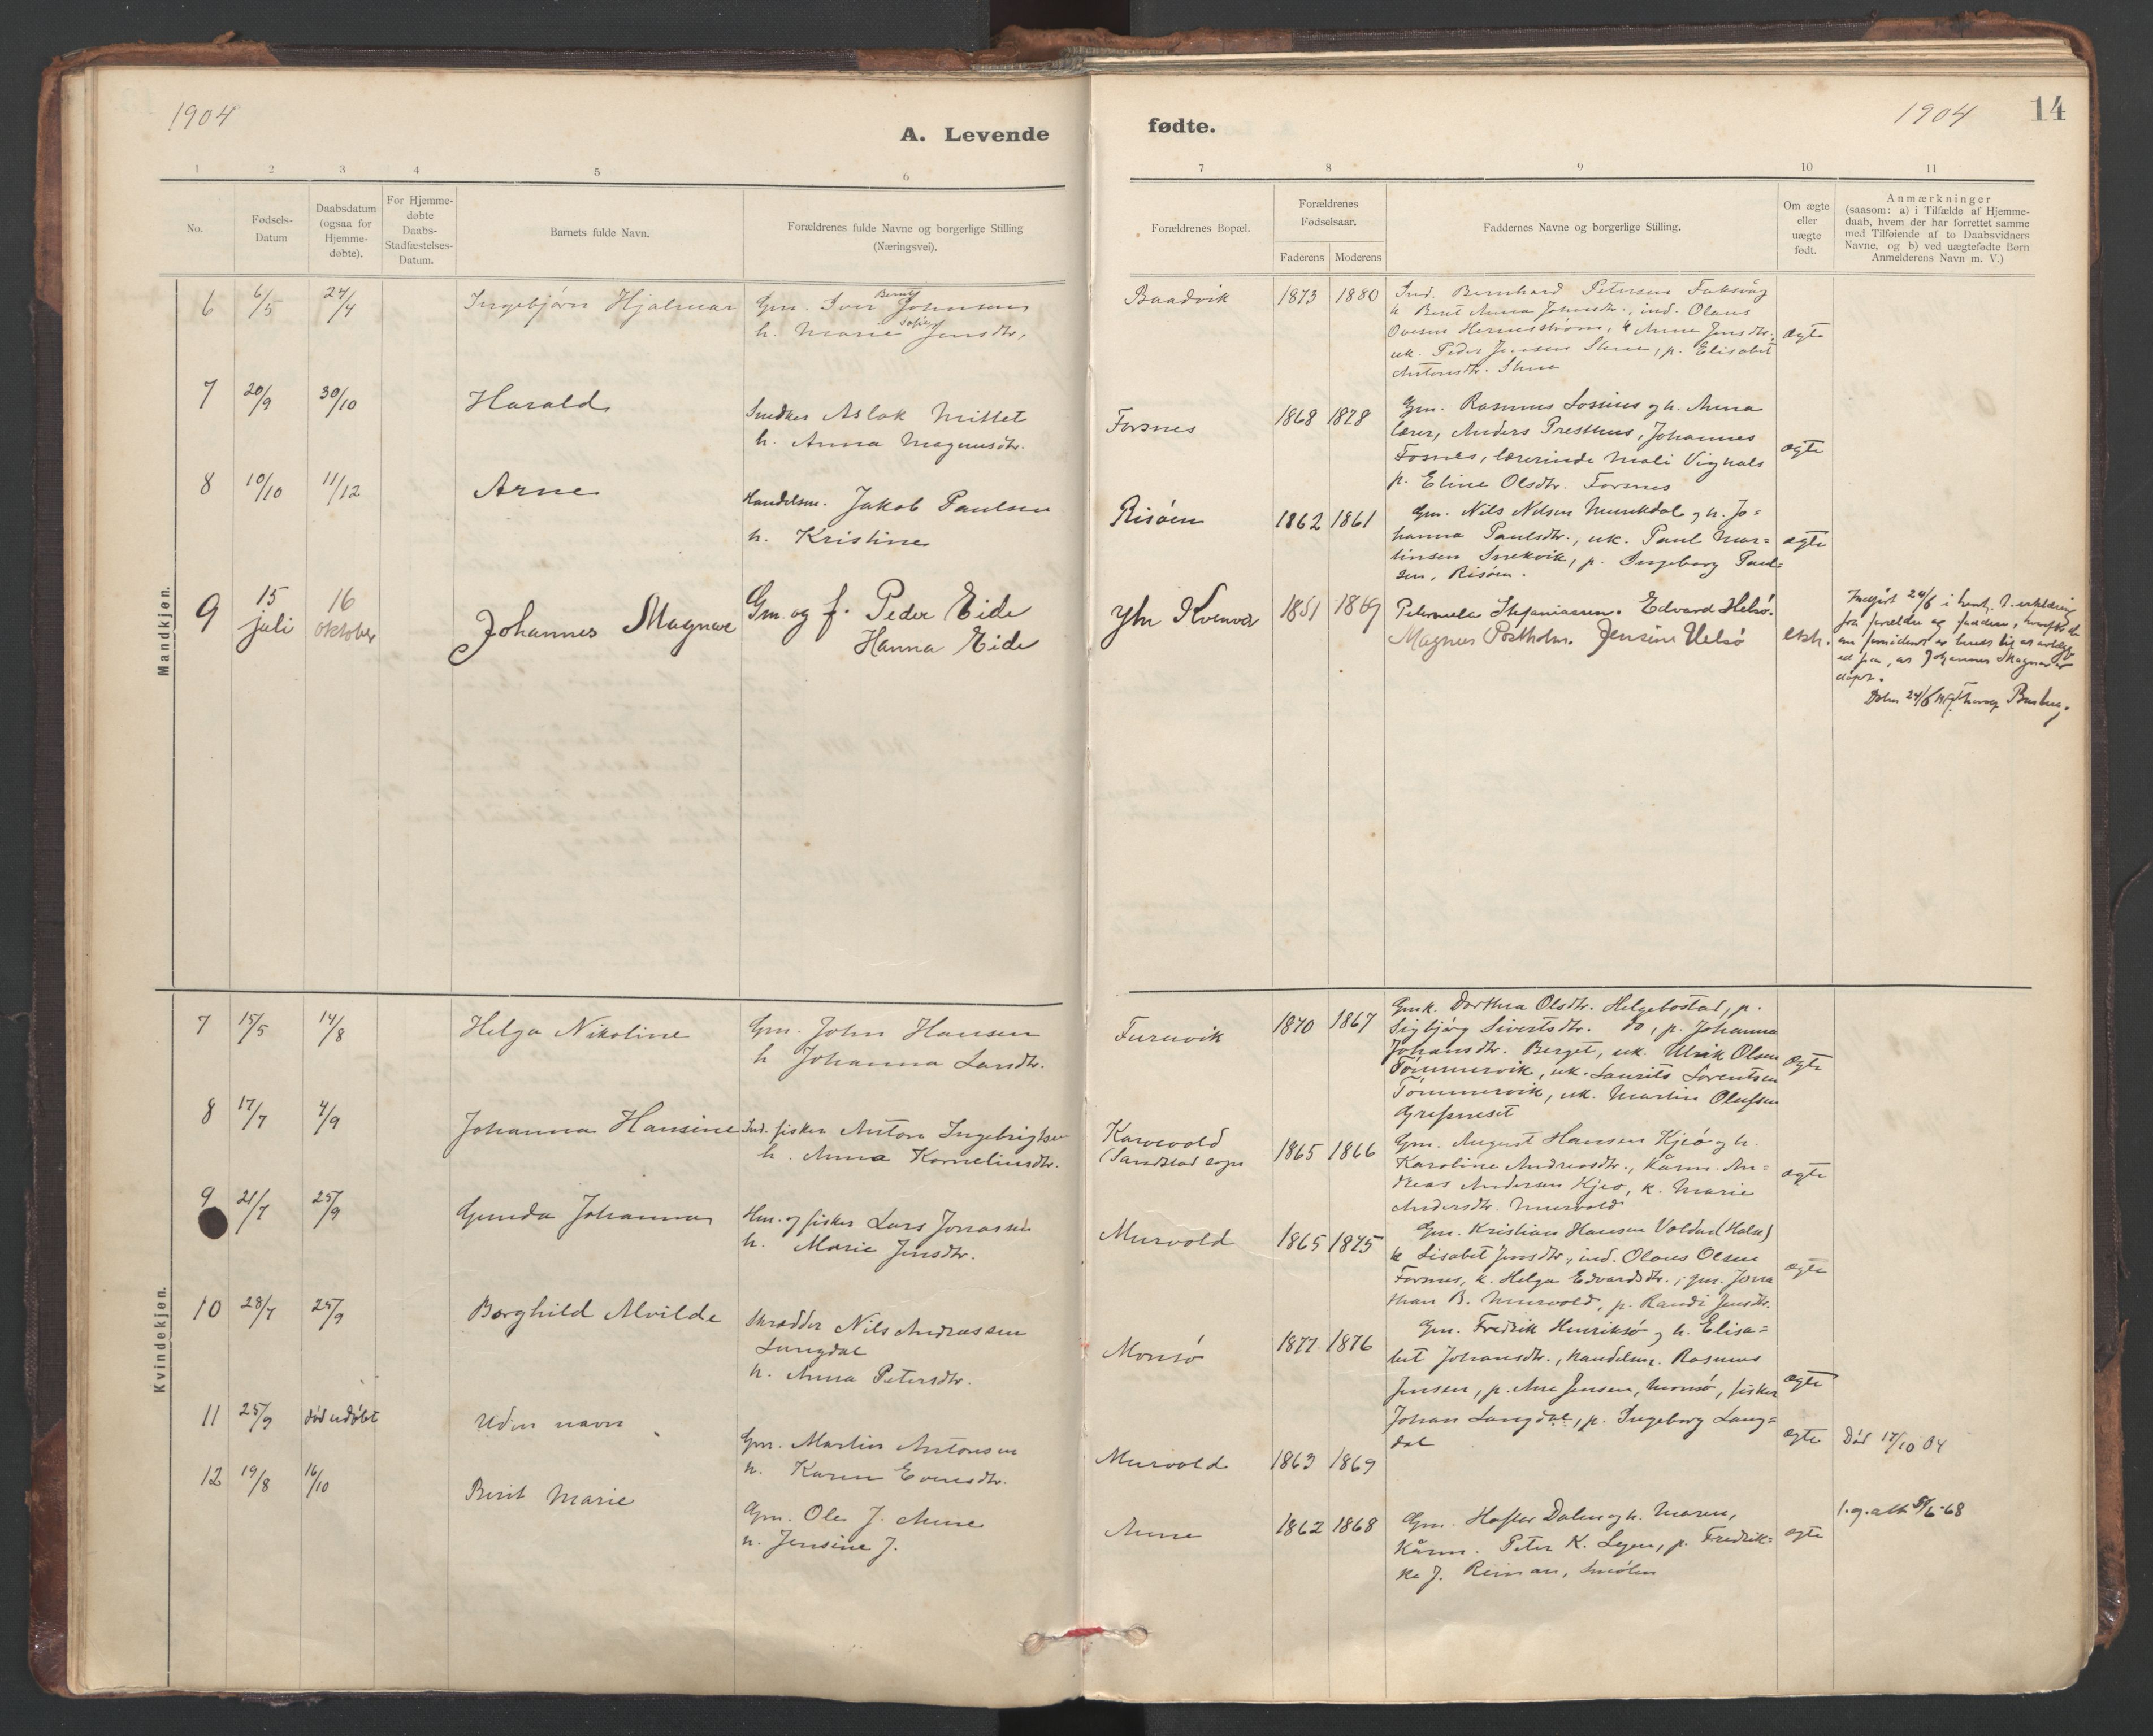 1904
A. Levende fødte.
1904
14
1 2 3 4 5 6 7 8 9 10 11
No.
Fødsels-
Datum
Daabsdatum
(ogsaa for
Hjemme-
døbte).
For Hjemme-
døbte
Daabs-
Stadfæstelses-
Datum.
Barnets fulde Navn.
Forældrenes fulde Navne og borgerlige Stilling
(Næringsvei).
Forældrenes Bopæl.
Forældrenes
Fødselsaar.
Faderens Moderens
Faddernes Navne og borgerlige Stilling.
Om ægte
eller
uægte
født.
Anmærkninger
(saasom: a) i Tilfælde af Hjemme-
daab, hvem der har forrettet samme
med Tilføiende af to Daabsvidners
Navne, og b) ved uægtefødte Børn
Anmelderens Navn m. V.)
Mandkjøn.
6 6/5 24/4 Ingebjørn Hjalmar
Gm. Iver Bernt Johnsen
h. Marie Jensdtr.
Baadvik 1873 1880
Ind. Bernhard Petersen Faksvåg
h Berit Anna Johnsdtr., ind. Olaus
Ovesen Hernesstrøm, h Anne Jensdtr.,
uk. Peder Jensen Skue, p. Elisabet
Antonsdtr. Skue
ægte
7 20/9 30/10 Harald
Snedker Aslak Mittet
h. Anna Magnusdtr.
Forsnes 1868 1878
Gm. Rasmus Lossius og h. Anna
lærer, Anders Presthus, Johannes
Fosnes, lærerinde Mali Vignals
p. Eline Olsdtr. Forsnes
ægte
8 10/10 11/12 Arne
Handelsm. Jakob Paulsen
h. Kristine
Risøen 1862 1861
Gm. Nils Nilsen Munkdal og h. Jo=
hanna Paulsdtr., uk. Paul Mar=
tinsen Snekvik, p. Ingeborg Paul=
sen, Risøen.
ægte
9 15 juli 16 oktober Johannes Magnar
Gm. og f. Peder Eide
Hanna Eide
Ytr Kvenvær 1851 1869
Peternele Stefaniassen. Edvard Helsø.
Magnus Postholm. Jensine Helsø
ekte.
Indført 24/6 i henh. t. erklæring
fra forældre og faddere,
ed paa, at Johannes Magnar er
døpt.
Kvindekjøn.
7 15/5 14/8 Helga Nikoline
Gm. John Hansen
h Johanna Larsdtr.
Furuvik 1870 1867
Gmk. Dorthea Olsdtr. Helgebostad, p.
Sigbjørg Sivertsdtr. do, p. Johanna
Johansdtr. Berget, uk. Ulrik Olsen
Tømmervik, uk. Laurits Lorentsen
Tømmervik, uk. Martin Olufsen
Grefsneset
ægte
8 17/7 4/9 Johanna Hansine
Ind. fisker Anton Ingebrigtsen
h. Anna Korneliusdtr.
Karvold
(Sandstad sogn 1865 1866
Gm. August Hansen Kjeø og h.
Karoline Andreasdtr., Kårm. An=
dreas Andersen Kjeø, k. Marie
Andersdtr. Murvold
ægte
9 21/7 25/9 Gunda Johanna
Hm. og fisker Lars Jonassen
h. Marie Jensdtr.
Murvold 1865 1875
Gm. Kristian Hansen Valden (Halsa)
h Lisabet Jensdtr., ind. Olaus Olsen
Forsnes, k. Helga Edvardsdtr., gm. Jona
than B. Murvold, p. Randi Jensdtr.
ægte
10 28/7 25/9 Borghild Alvilde
Skrædder Nils Andreassen
Langdal
h. Anna Petersdtr.
Monsø 1877 1876
Gm. Fredrik Henriksø og h. Elisa=
bet Johansdtr., handelsm. Rasmus
Jensen, p. Ane Jensen, Monsø, fisker
Johan Langdal, p. Ingeborg Lang=
dal
ægte
11 25/9 død udøbt Uden navn
Gm. Martin Antonsen
h. Karen Evensdtr.
Murvold 1863 1869
ægte Død 17/10 04
12 19/8 16/10 Berit Marie
Gm. Ole J. Aune
h. Jensine J.
Aune 1862 1868
Gm. Hafter Dalen og h. Maren,
Kårm. Peter K. Lyen, p. Fredrik=
ke J. Reinan, Smølen
ægte
l.g.att 5/6-68